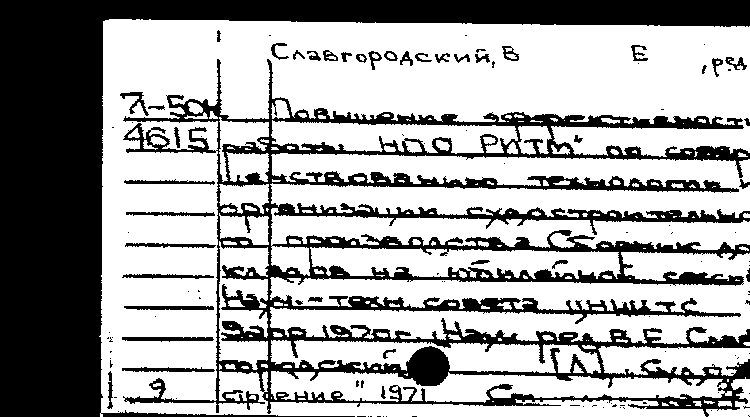 Славгородский, В Е , ред
71-50к Повышение эффективност
4615 работы НПО РИТМ" по совер
шенствованию технологии
организации судостроительно
го производства Сборник до
кладов на юбилейной сессии
Науч.-техн. совета ЦНИИТС
9 апр 1970г. Науч ред В.Е Слав
городский [Л], Судо
9 строение", 1971 См.